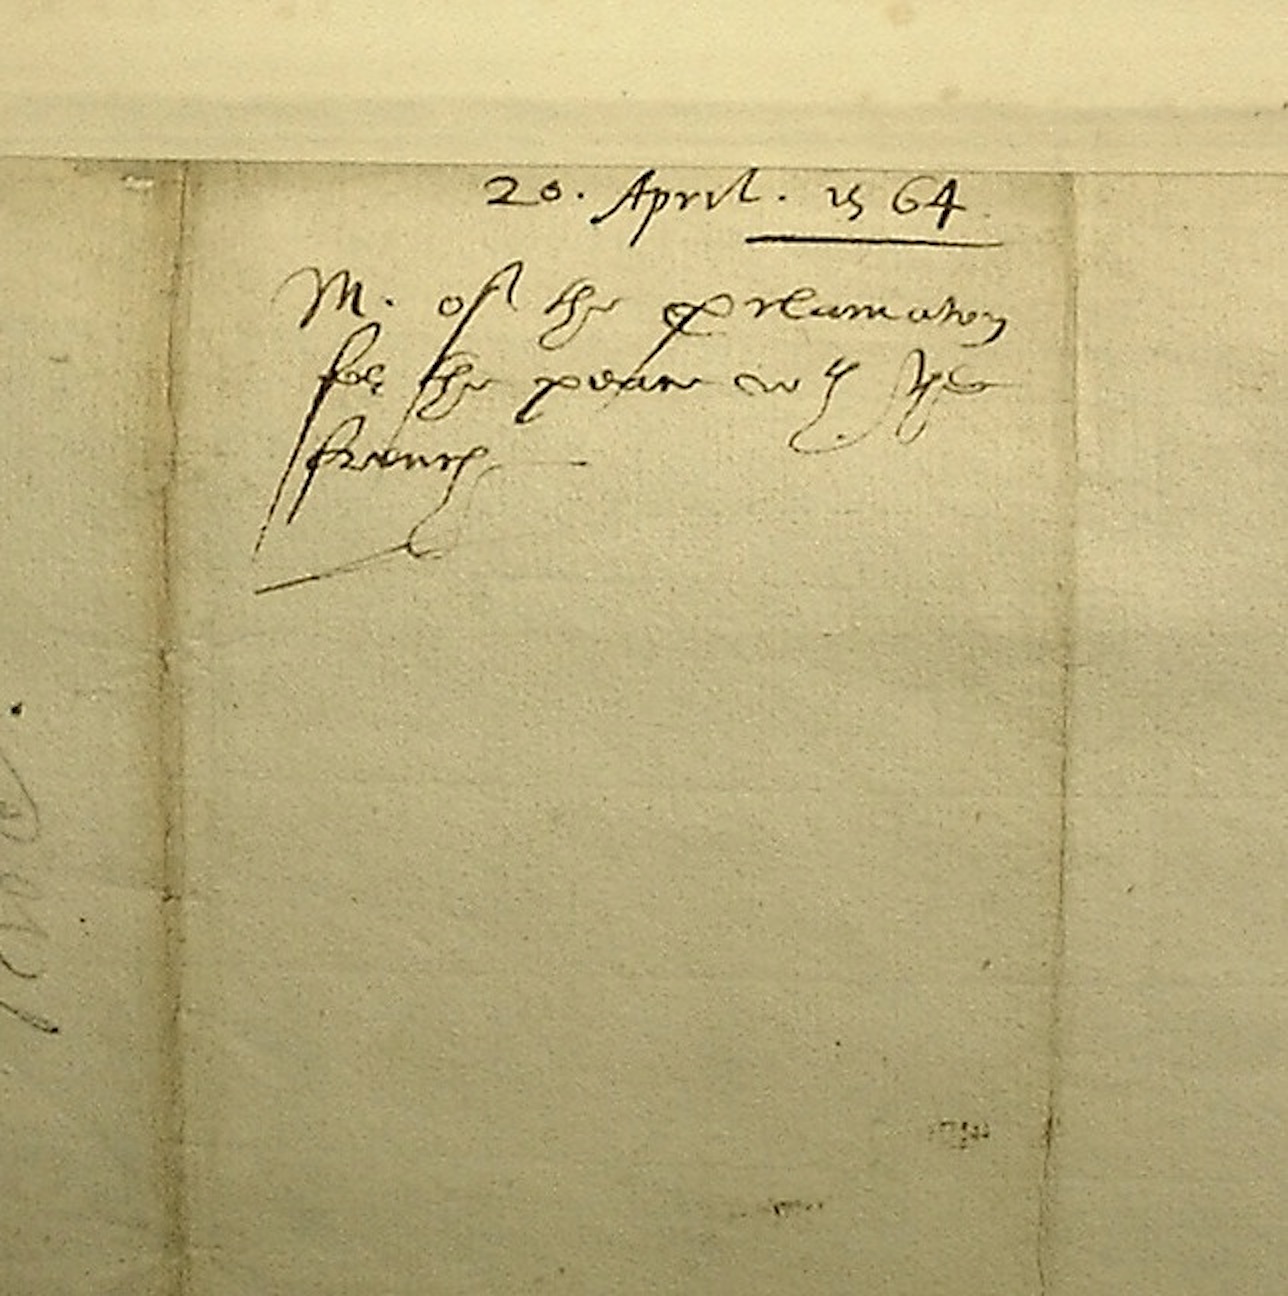 20. April. 1564.
M. of the proclamation
for the peace wth the
french